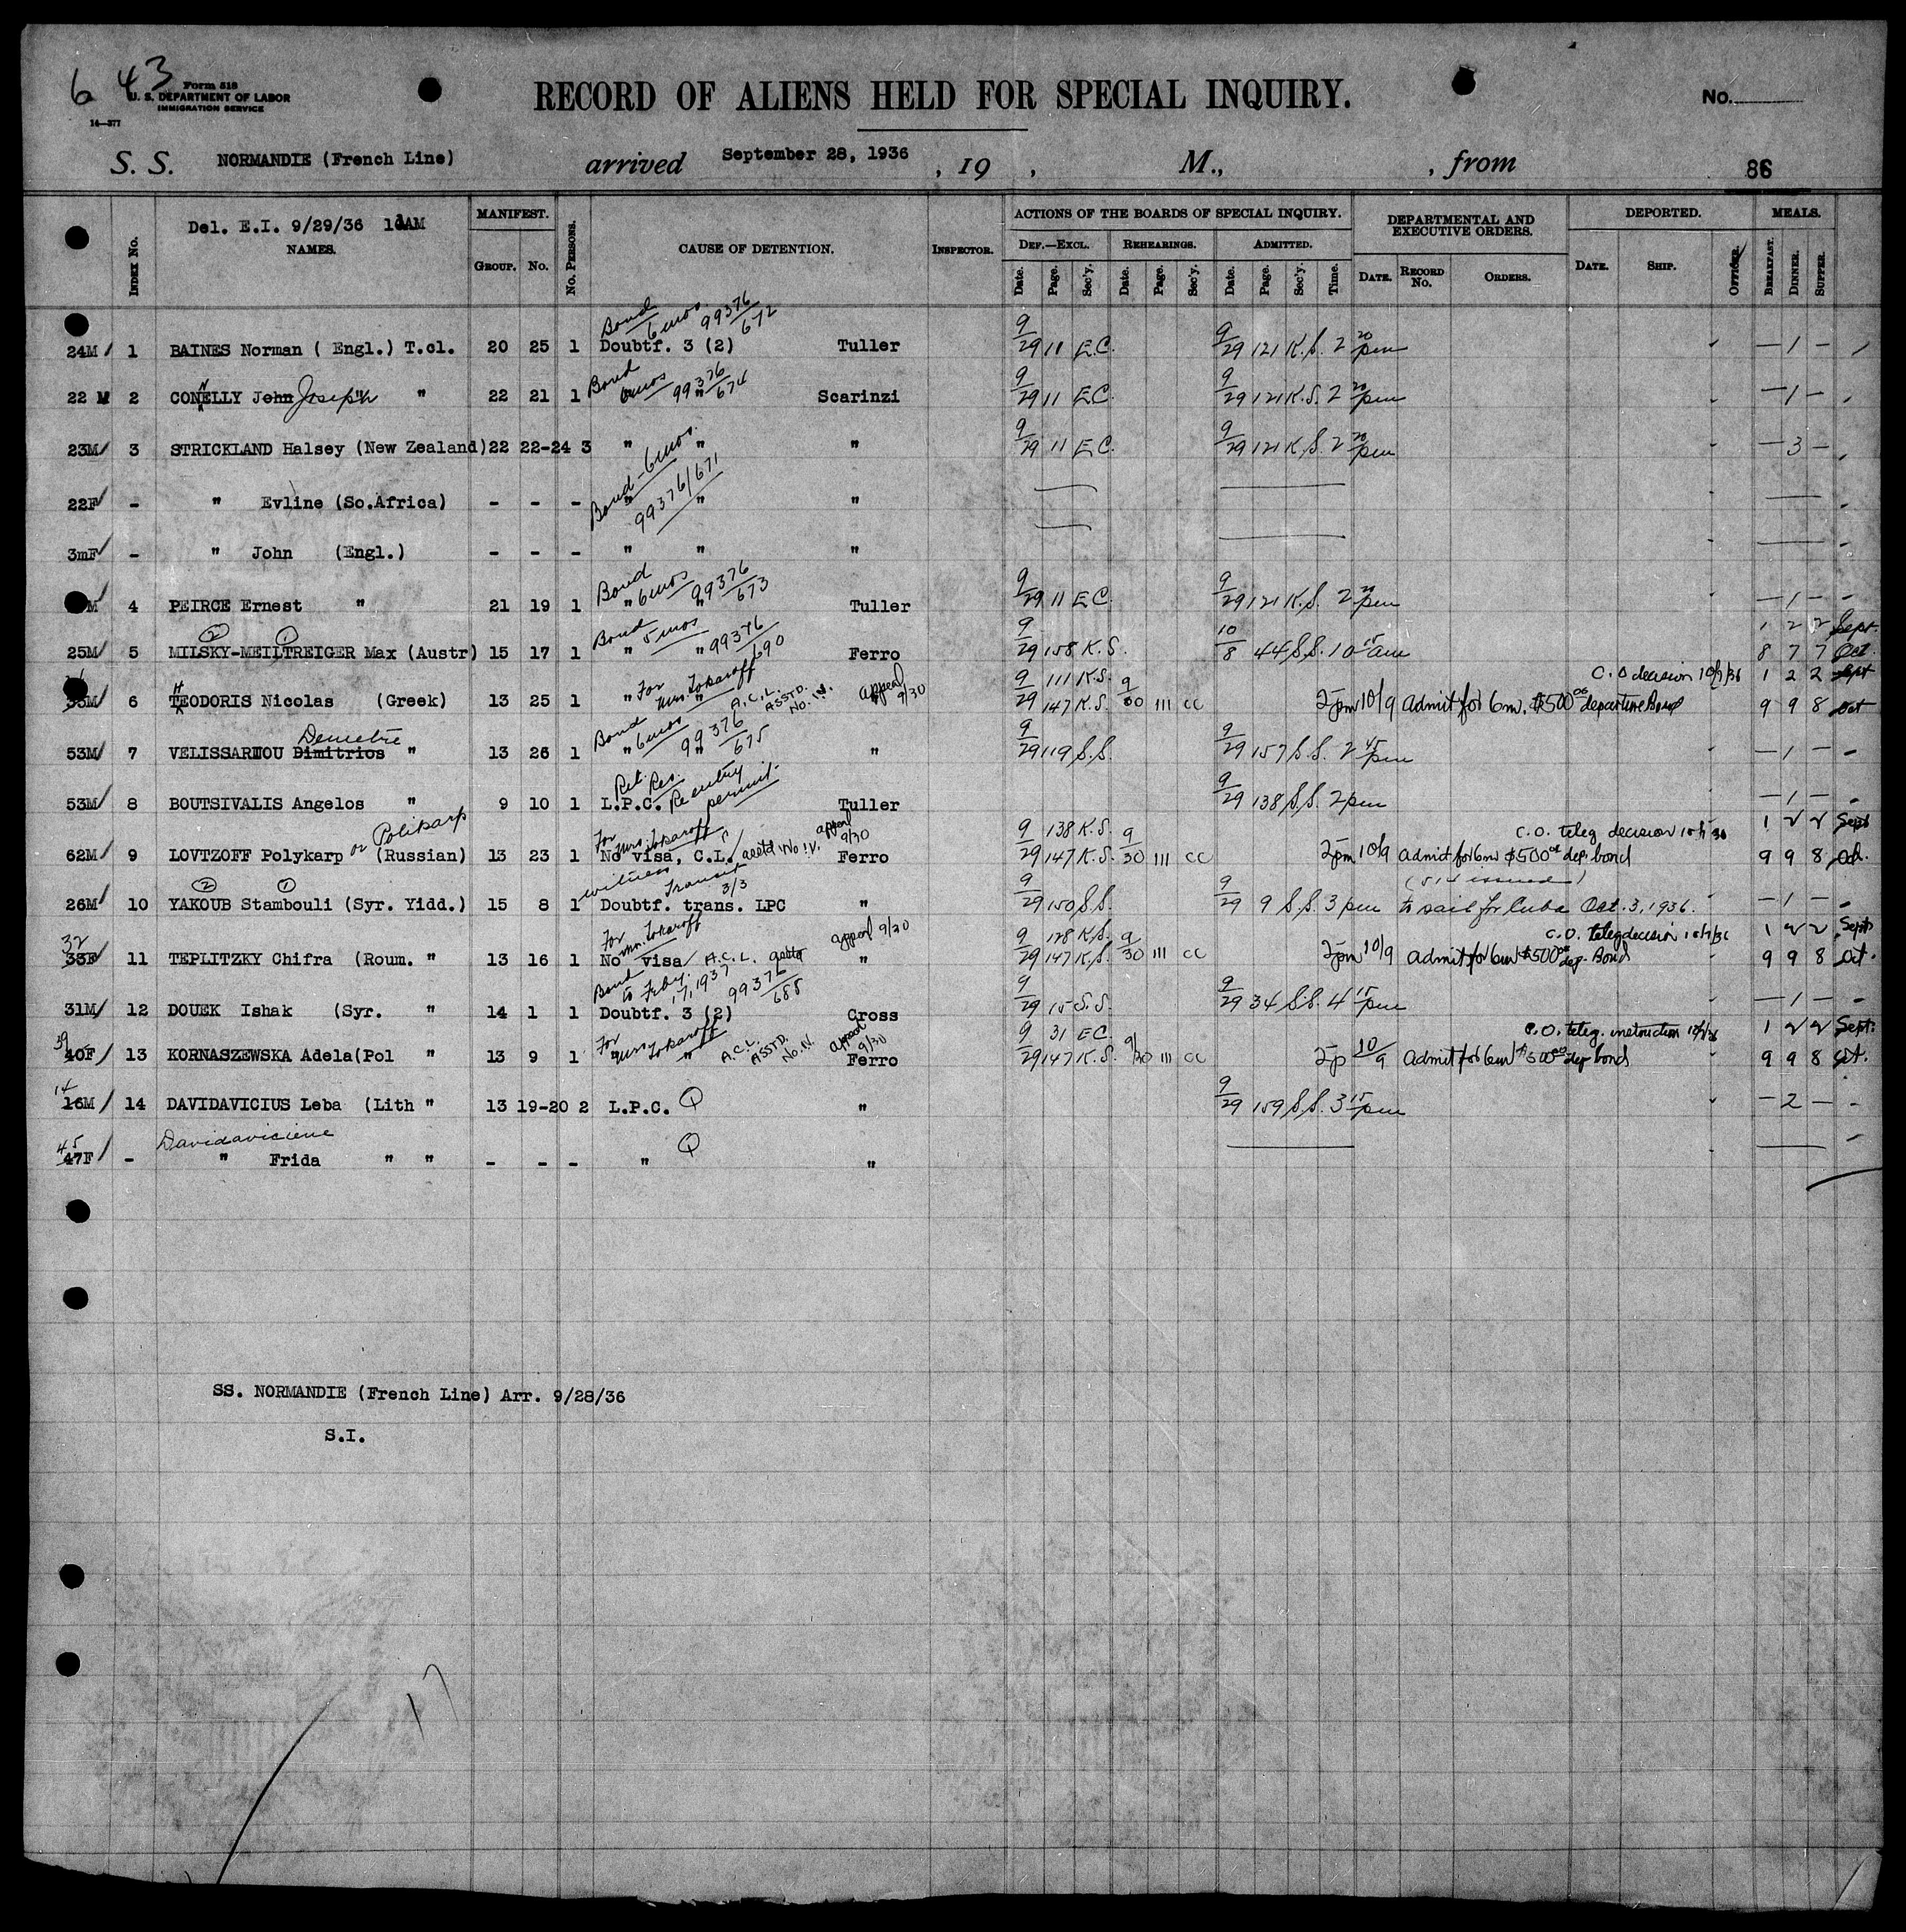 6 43
Form 518
U. S. DEPARTMENT OF LABOR
IMMIGRATION SERVICE
14—377
RECORD OF ALIENS HELD FOR SPECIAL INQUIRY.
No.
S. S. NORMANDIE (French Line) arrived September 28, 1936, 19 , M., , from 86
Del. E.I. 9/29/36 10AM
Index No. NAMES. MANIFEST. Group. No. No. Persons. CAUSE OF DETENTION. Inspector. ACTIONS OF THE BOARDS OF SPECIAL INQUIRY. DEPARTMENTAL AND EXECUTIVE ORDERS. DEPORTED. MEALS.
Def.—Excl. Rehearings. Admitted.
Date. Page. Sec'y. Date. Page. Sec'y. Date. Page. Sec'y. Time. Date. Record No. Orders. Date. Ship. Officer. Breakfast. Dinner. Supper.
Bond 6mos 99376/672
24M 1 BAINES Norman ( Engl.) T.cl. 20 25 1 Doubtf. 3 (2) Tuller 9/29 11 E.C. 9/29 121 K.S. 2 20 pm — 1 —
Bond 6mos 99376/674
22 M 2 CONNELLY John Joseph " " 22 21 1 " Scarinzi 9/29 11 E.C. 9/29 121 K.S. 2 20 pm — 1 —
23M 3 STRICKLAND Halsey (New Zealand) 22 22-24 3 " " " 9/29 11 E.C. 9/29 121 K.S. 2 20 pm — 3 —
Bond - 6mos. 99376/671
22F - " Evline (So.Africa) - - - " " "
3mF - " John (Engl.) - - - " " "
Bond 6mos 99376/673
M 4 PEIRCE Ernest " 21 19 1 " " Tuller 9/29 11 E.C. 9/29 121 K.S. 2 20 pm — 1 — -
Bond 5mos 99376/690
1 2 2 Sept.
25M 5 MILSKY-MEILTREIGER Max (Austr) 15 17 1 " " Ferro 9/29 158 K.S. 10/8 44 S.S. 10 15 am 8 7 7 Oct.
For Mrs. Tokaroff A.C.L. ASSTD. No. I.V. appeal 9/30
111 K.S. C.O decision 10/9/36 1 2 2 Sept
35M 6 THEODORIS Nicolas (Greek) 13 25 1 " " " 9/29 147 K.S. 9/30 111 CC 2pm 10/9 admit for 6m. $500 00 departure Bond 9 9 8 Oct
Bond 6mos 99376/675
Demetre
53M 7 VELISSARIOU Dimitrios " 13 26 1 " " " 9/29 119 S.S. 9/29 157 S.S. 2 45 pm — 1 — -
Ret. Res. Re entry permit.
53M 8 BOUTSIVALIS Angelos " 9 10 1 L.P.C. Tuller 9/29 138 S.S. 2pm — 1 — -
For Mrs. Tokaroff appeal 9/30
or Polikarp
138 K.S. C.O. teleg decision 1 2 2 Sept
62M 9 LOVTZOFF Polykarp (Russian) 13 23 1 No visa, C.L. No I.V. Ferro 9/29 147 K.S. 9/30 111 CC 2pm 10/9 admit for 6m $500 00 dep. bond 9 9 8 Oct.
witness Transit 3/3
26M 10 YAKOUB Stambouli (Syr. Yidd.) 15 8 1 Doubtf. trans. LPC " 9/29 150 S.S. 9/29 9 S.S. 3 pm to sail for Cuba Oct. 3, 1936. — 1 — -
For Mrs. Tokaroff appeal 9/30
32 128 K.S. C.O. teleg decision 1 2 2 Sept
33F 11 TEPLITZKY Chifra (Roum. " 13 16 1 No visa A.C.L. " 9/29 147 K.S. 9/30 111 CC 2pm 10/9 admit for 6m $500 00 dep. Bond 9 9 8 Oct.
Bond to Feby. 17, 1937 99376/688
31M 12 DOUEK Ishak (Syr. " 14 1 1 Doubtf. 3 (2) Cross 9/29 15 S.S. 9/29 34 S.S. 4 15 pm — 1 — -
For Mrs Tokaroff A.C.L. ASSTD. No. I.V. appeal 9/30
39 31 E.C. C.O. teleg. instruction 1 2 2 Sept.
40F 13 KORNASZEWSKA Adela (Pol " 13 9 1 " " Ferro 9/29 147 K.S. 9/30 111 CC 2p 10/9 admit for 6m $500 00 dep bond 9 9 8 Oct.
14
16M 14 DAVIDAVICIUS Leba (Lith " 13 19-20 2 L.P.C. Q " 9/29 159 S.S. 3 15 pm — 2 — -
45 Davidaviciene
47F - " Frida " " - - - " Q "
SS. NORMANDIE (French Line) Arr. 9/28/36
S.I.
17